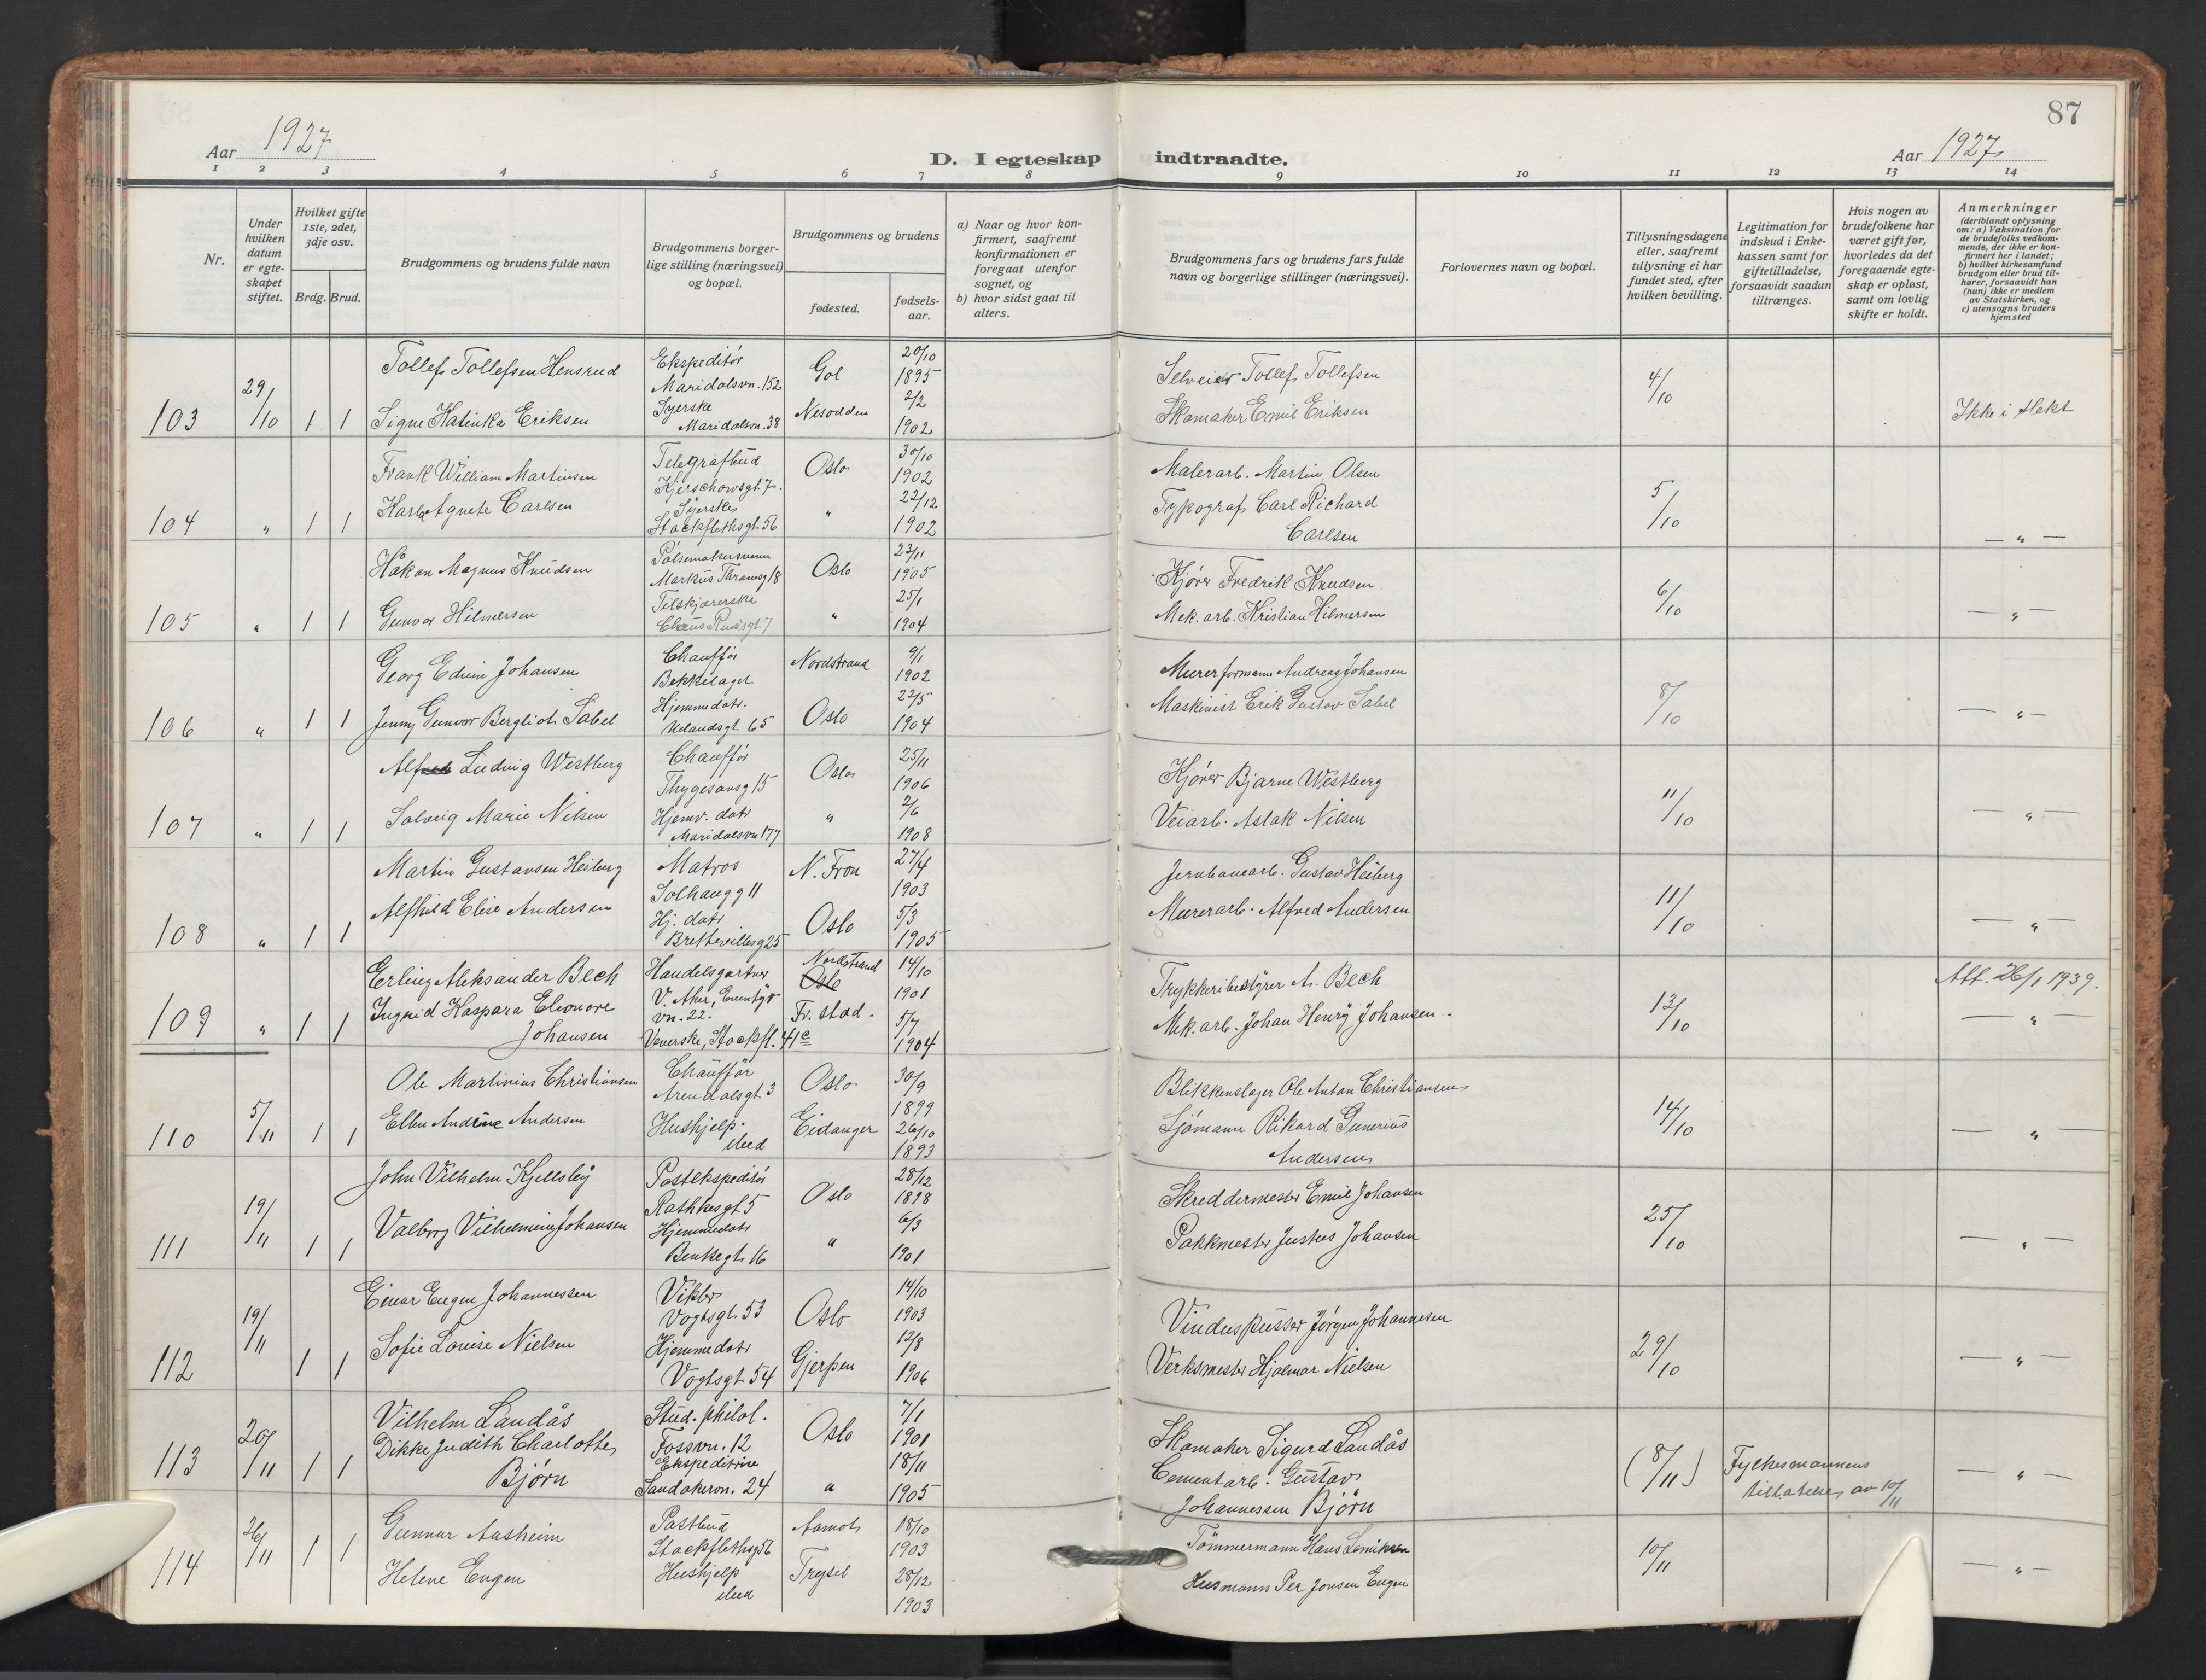 87
Aar 1927
D. I egteskap indtraadte.
Aar 1927
1 2 3 4 5 6 7 8 9 10 11 12 13 14
Nr.
Under hvilken datum er egteskapet stiftet.
Hvilket gifte 1ste, 2det, 3dje osv.
Brdg. Brud.
Brudgommens og brudens fulde navn
Brudgommens borgerlige stilling (næringsvei) og bopæl.
Brudgommens og brudens
fødested.
fødsels-aar.
a) Naar og hvor konfirmert, saafremt konfirmationen er foregaat utenfor sognet, og
b) hvor sidst gaat til alters.
Brudgommens fars og brudens fars fulde navn og borgerlige stillinger (næringsvei).
Forlovernes navn og bopæl.
Tillysningsdagene eller, saafremt tillysning ei har fundet sted, efter hvilken bevilling.
Legitimation for indskud i Enkekassen samt for giftetilladelse, forsaavidt saadan tiltrænges.
Hvis nogen av brudefolkene har været gift før, hvorledes da det foregaaende egteskap er opløst, samt om lovlig skifte er holdt.
Anmerkninger
(deriblandt oplysning om: a) Vaksination for de brudefolks vedkommende, der ikke er konfirmert her i landet; b) hvilket kirkesamfund brudgom eller brud tilhører, forsaavidt han (hun) ikke er medlem av Statskirken, og c) utensogns bruders hjemsted
Tollef Tollefsen Hensrud Ekspeditör Maridalsvn. 152 Gol 20/10 1895 Selveier Tollef Tollefsen
103 29/10 1 1 Signe Katinka Eriksen Syerske Maridalsvn. 38 Nesodden 2/2 1902 Skomaker Emil Eriksen 4/10 Ikke i slekt
Frank William Martinsen Telegrafbud Kjerschowsgt 7. Oslo 30/10 1902 Malerarb. Martin Olsen
104 " 1 1 Karla Agnete Carlsen Syerske Stockflethsgt 56 " 22/12 1902 Typograf Carl Richard Carlsen 5/10 — " —
Håkon Magnus Knudsen Pölsemakersvenn Markus Thranesg 18 Oslo 23/11 1905 Kjörer Fredrik Knudsen
105 " 1 1 Gunvor Hilmersen Tilskjærerske Claus Riisgt 7 " 25/1 1904 Mek. arb. Kristian Hilmersen 6/10 — " —
Georg Edvin Johansen Chaufför Bekkelaget Nordstrand 9/1 1902 Murerformann Andreas Johansen
106 " 1 1 Jenny Gunvor Bergliot Sabel Hjemmedatr. Uelandsgt 65 Oslo 22/5 1904 Maskinist Erik Gustav Sabel 8/10 — " —
Alf Ludvig Westberg Chaufför Thygesonsg 15 Oslo 25/11 1906 Kjörer Bjarne Westberg
107 " 1 1 Solveig Marie Nilsen Hjemv. datr Maridalsvn 177 " 2/6 1908 Veiarb. Aslak Nilsen 11/10 — " —
Martin Gustavsen Heiberg Matros Solhaugg 11 N. Fron 27/4 1903 Jernbanearb. Gustav Heiberg
108 " 1 1 Alfhild Elise Andersen Hj. datr Brettevillesg 25 Oslo 5/3 1905 Murerarb. Alfred Andersen 11/10 — " —
Erling Aleksander Bech Handelsgartner V. Aker, Eventyrvn. 22. Nordstrand Oslo 14/10 1901 Trykkeribestyrer A. Bech Att. 26/1 1939.
109 " 1 1 Ingrid Kaspara Eleonore Johansen Veverske, Stockfl. 41c Fr. stad. 5/7 1904 Mek. arb. Johan Henry Johansen. 13/10 — " —
Ole Martinius Christiansen Chaufför Arendalsgt 3 Oslo 30/9 1899 Blikkenslager Ole Anton Christiansen
110 5/11 1 1 Ellen Andrine Andersen Hushjelp. sted Eidanger 26/10 1893 Sjömann Rikard Gunerius Andersen 14/10 — " —
John Vilhelm Kjellsby Postekspeditör Rathkesgt. 5 Oslo 28/12 1898 Skreddermester Emil Johansen
111 19/11 1 1 Valborg Vilhelmine Johansen Hjemmedatr Bentsegt 16 " 6/3 1901 Pakkmester Justus Johansen 25/10 — " —
Einar Eugen Johannessen Vikler Vogtsgt. 53 Oslo 14/10 1903 Vinduspusser Jörgen Johannesen
112 19/11 1 1 Sofie Lovise Nielsen Hjemmedatr Vogtsgt 54 Gjerpen 12/8 1906 Verksmester Hjalmar Nielsen 29/10 — " —
Vilhelm Landås Stud. philol. Fossvn. 12 Oslo 7/1 1901 Skomaker Sigurd Landås
113 20/11 1 1 Dikke Judith Charlotte Björn Ekspeditrise Sandakervn. 24 " 18/11 1905 Cementarb. Gustav Johannessen Björn (8/11) Fylkesmannens tillatelse av 10/11 — " —
Gunnar Aasheim Postbud Stockflethsg 56 Aamot 18/10 1903 Tömmermann Hans
114 26/11 1 1 Helene Engen Hushjelp sted Trysil 28/12 1903 Husmann Per Jonsen Engen 10/11 — " —